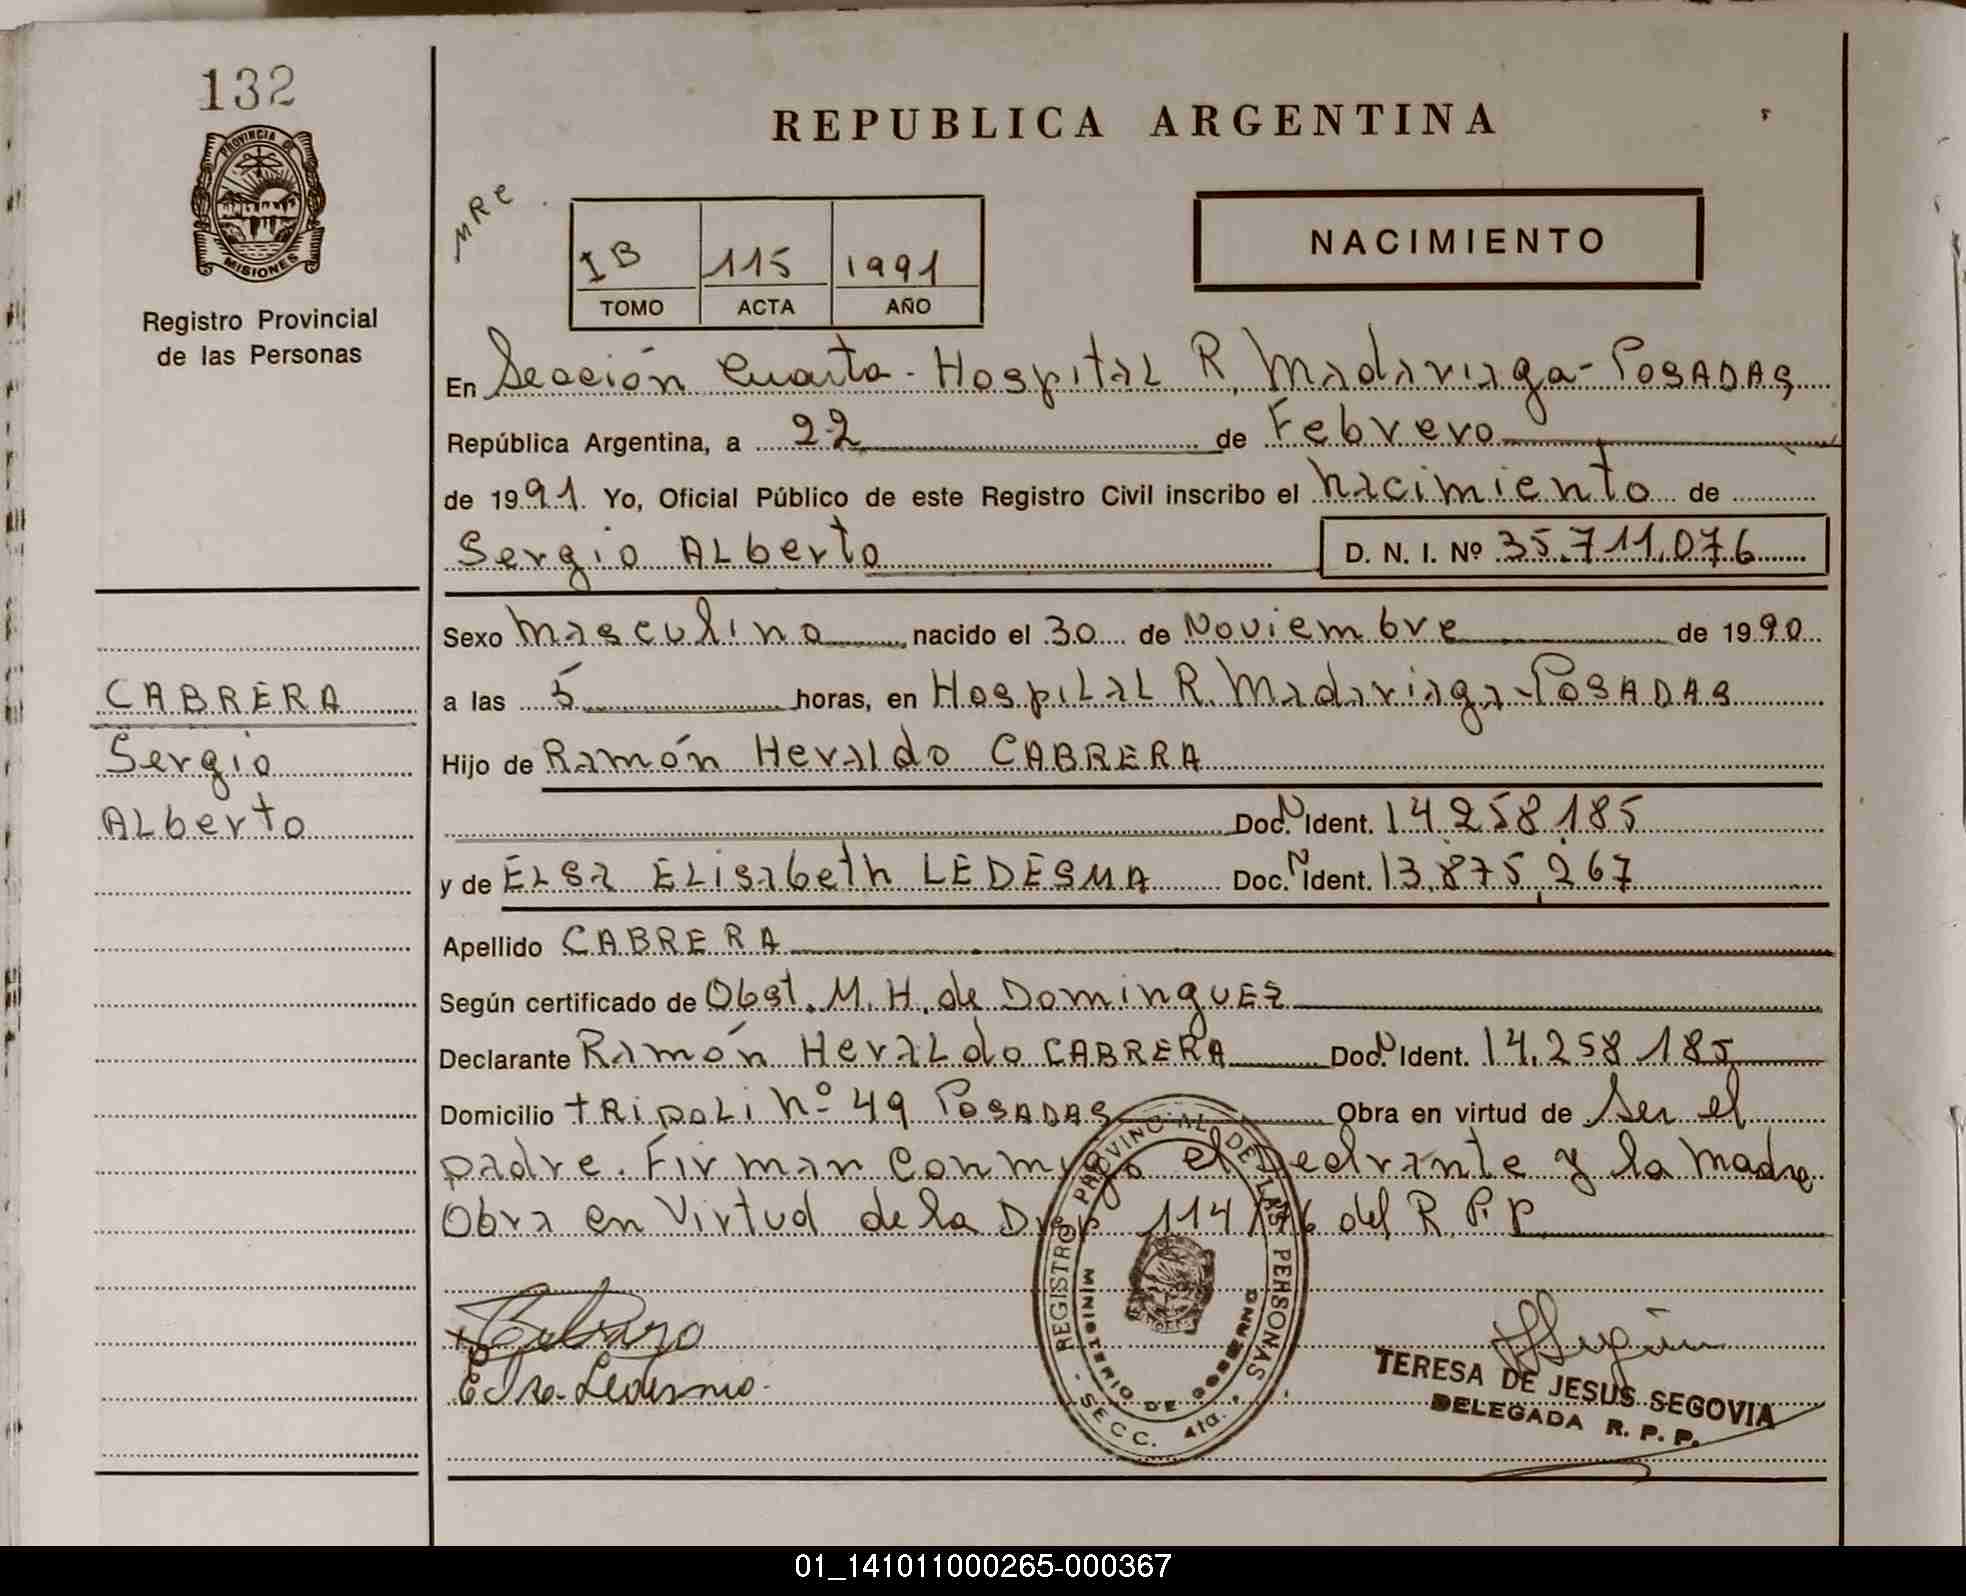 132
PROVINCIA D.
MISIONES
Registro Provincial
de las Personas
CABRERA
Sergio
ALberto
REPUBLICA ARGENTINA
MRC
IB 115 1991
TOMO ACTA AÑO
NACIMIENTO
En Sección Cuarta - Hospital R. Madariaga - POSADAS
República Argentina, a 22 de Febrero
de 1991. Yo, Oficial Público de este Registro Civil inscribo el nacimiento de
Sergio ALberto D. N. I. Nº 35.711.076
Sexo masculino nacido el 30 de Noviembre de 1990
a las 5 horas, en Hospital R. Madariaga - POSADAS
Hijo de Ramón Heraldo CABRERA
Doc. N Ident. 14.258.185
y de ELSA ELisabeth LEDESMA Doc. N Ident. 13.875.267
Apellido CABRERA
Según certificado de Obst. M. H. de DominguEz
Declarante Ramón HeraLdo CABRERA Doc. N Ident. 14.258.185
Domicilio tRipoLi Nº 49 POSADAS Obra en virtud de Ser el
padre. Firman conmigo el Declrante y la madre
Obra en Virtud de la Disp 114/76 del R.P.P.
REGISTRO PROVINCIAL DE LAS PERSONAS
MINISTERIO DE GOBIERNO
SECC. 4ta.
Elsa Ledesma.
TERESA DE JESUS SEGOVIA
DELEGADA R. P. P.
01_141011000265-000367